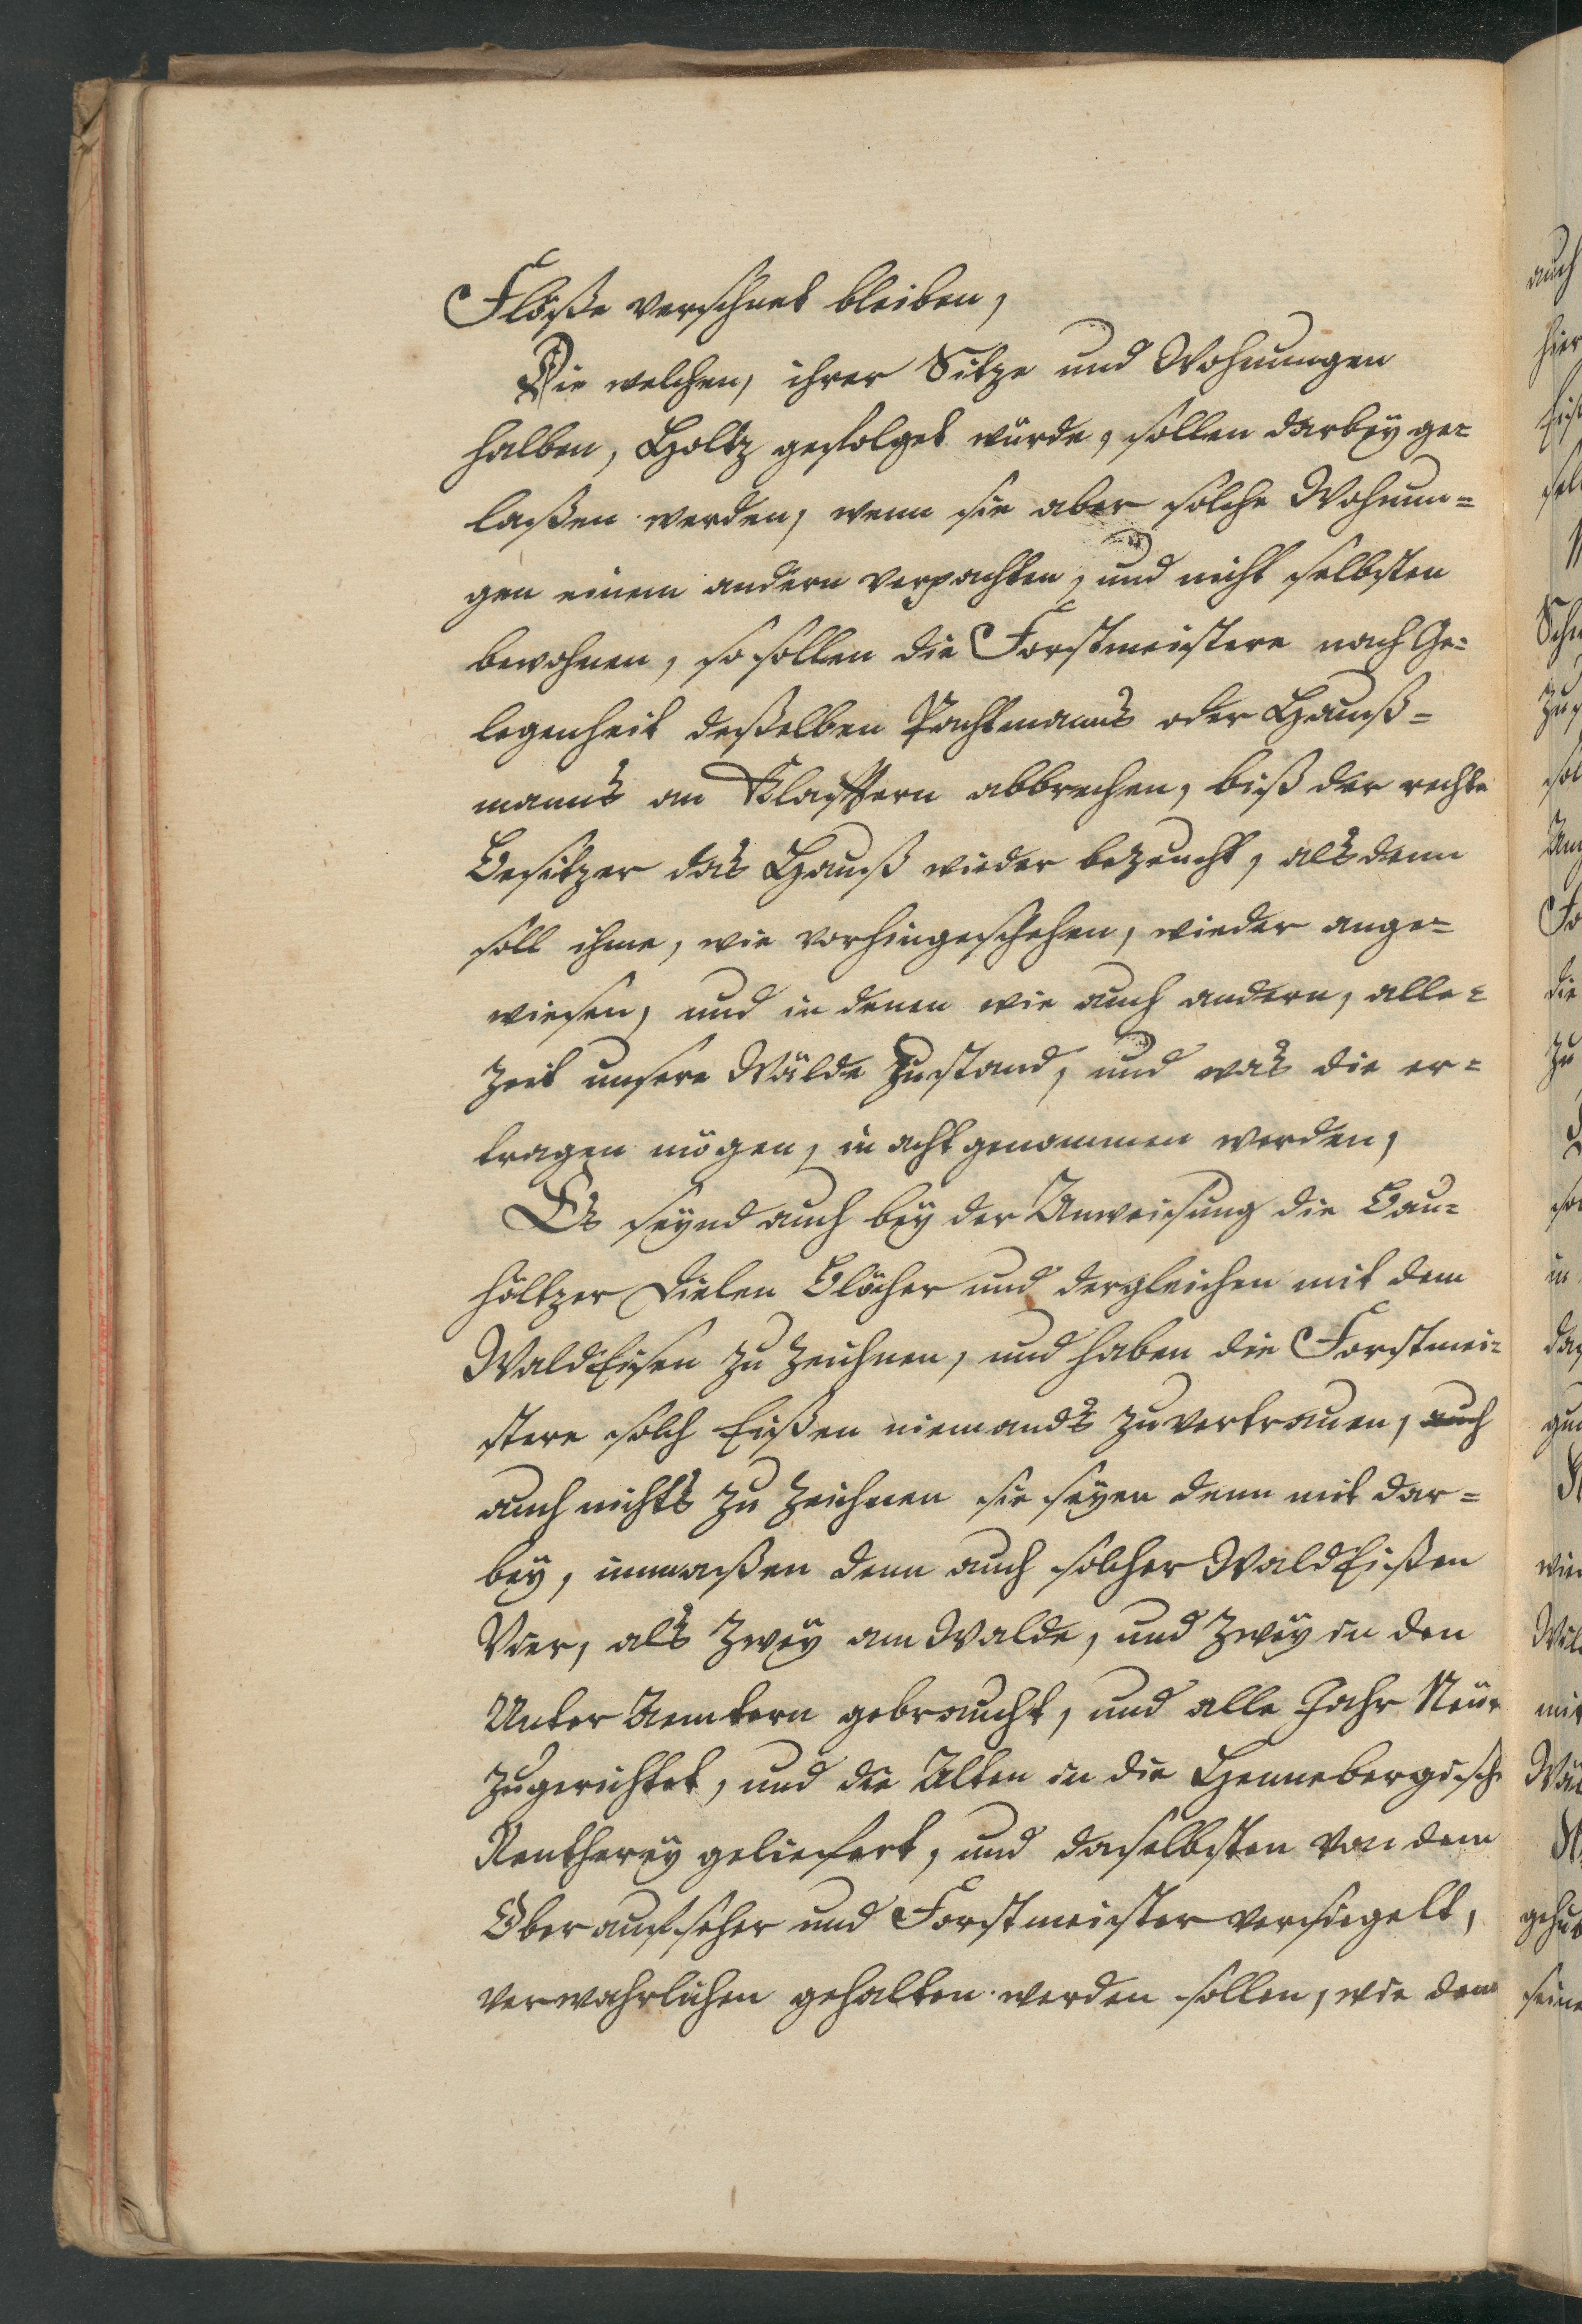 Flöße verschnet bleiben,
Die welchen, ihrer Sitze und Wohnungen
halben, Holtz gefolget würde, sollen darbey ge-
laßen werden, wenn sie aber solche Wohnun-
gen einem andern verpachten, und nicht selbsten
bewohnen, so sollen die Forstmeistere nach Ge-
legenheit deßelben Pachtmanns oder Hauß-
manns an Klafftern abbrechen, biß der rechte
Besitzer das Hauß wieder bezeucht, alsdenn
soll ihme, wie vorhin geschehen, wieder ange-
wiesen, und in denen wie auch andern, alle-
zeit unsere Wälde Zustand, und was die er-
tragen mögen, in acht genommen werden,
Es seynd auch bey der Anweisung die Bau-
höltzer Dielen Blöcher und dergleichen mit dem
WaldEisen zu zeichnen, und haben die Forstmei-
stere solch Eißen niemands zuvertrauen, auch
auch nichts zu zeichnen sie seyen denn mit dar-
bey, inmaßen denn auch solcher WaldEißen
Vier, als zwey am Walde, und zwey in den
Unter Aemtern gebraucht, und alle Jahr Neue
zugerichtet, und die Alten in die Hennebergische
Rentherey geliefert, und daselbsten von dem
Oberaufseher und Forstmeister versiegelt,
verwahrlichen gehalten werden sollen, wie denn
auch
hier
Schn
die
zu
in
wie
mit
seine